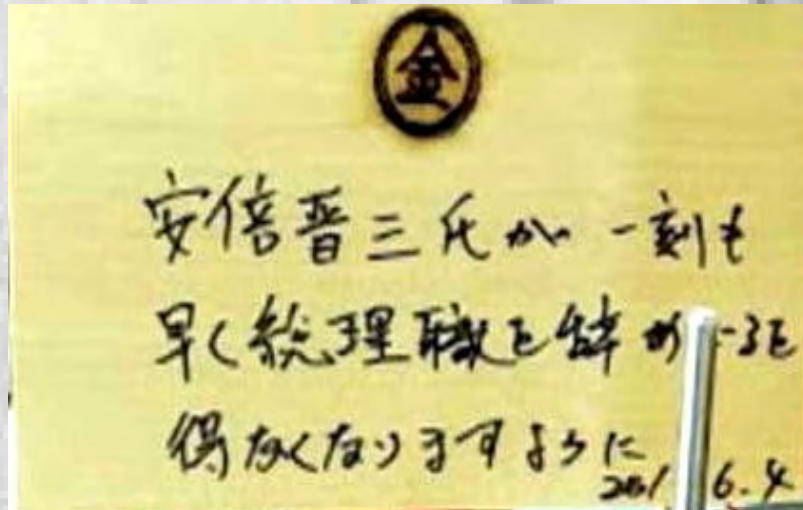 金
安倍晋三氏が一刻も
早く総理職を辞めざるを
得なくなりますように
6.4